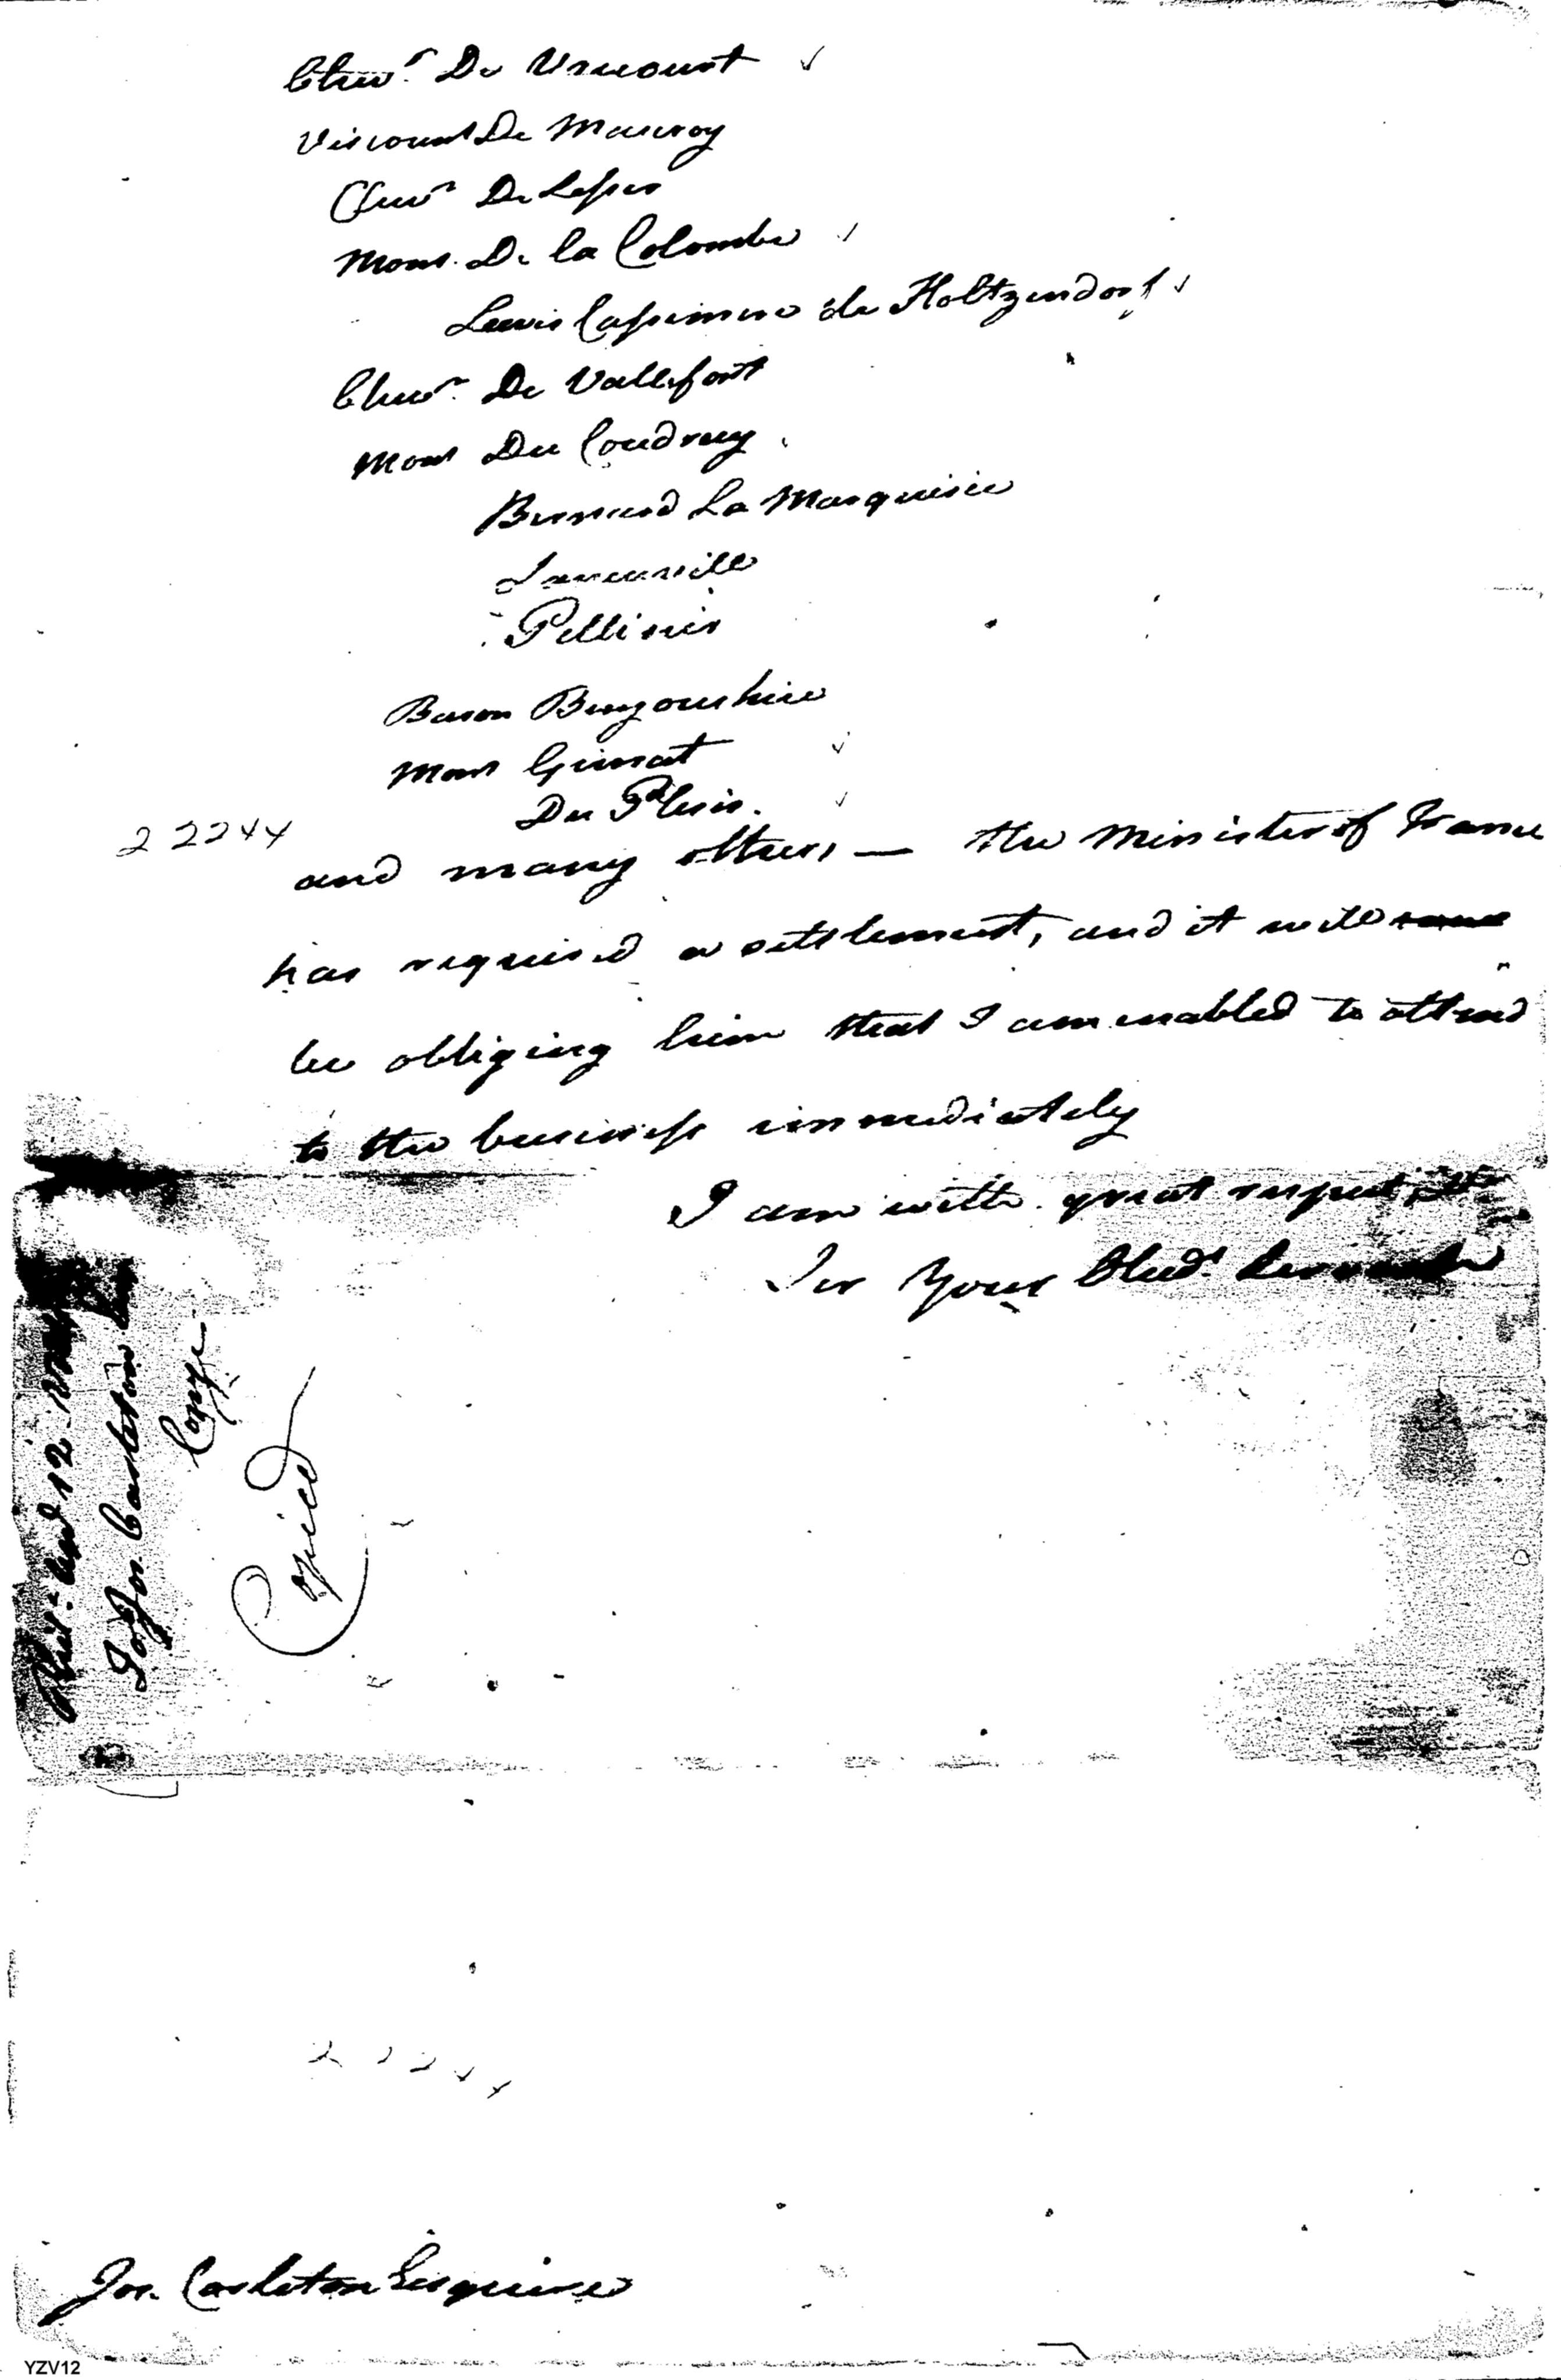 Chevr. De Vrecourt ✓
Viscount De Mauroy
Chevr De Lesser
Mons. De la Colombe ✓
Lewis Cassimere de Holtzendorf ✓
Chevr. De Vallefort
Mons Du Coudray
Bernard La Marquisie
Laneuville
Pellisier
Baron Bonzourhire
Mons Gimat ✓
Du Plesis. ✓
22244
and many others — the Minister of France
has required a settlement, and it will
be obliging him that I am enabled to attend
to the business immediately
I am with great respect
Sir Your Obed.t Servant
12
To Jos. Carleton
Copy
Copied
22244
Jos. Carleton Esquire
YZV12